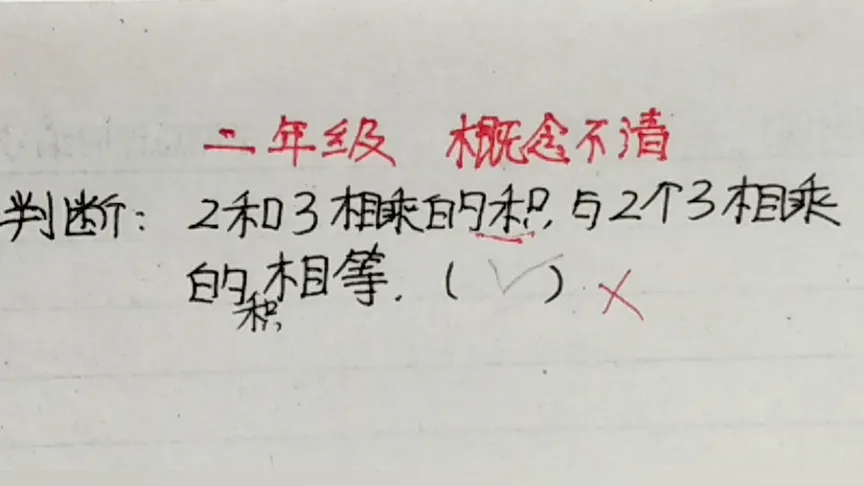 二年级 概念不清
判断：2和3相乘的积,与2个3相乘
的积相等.（√）×